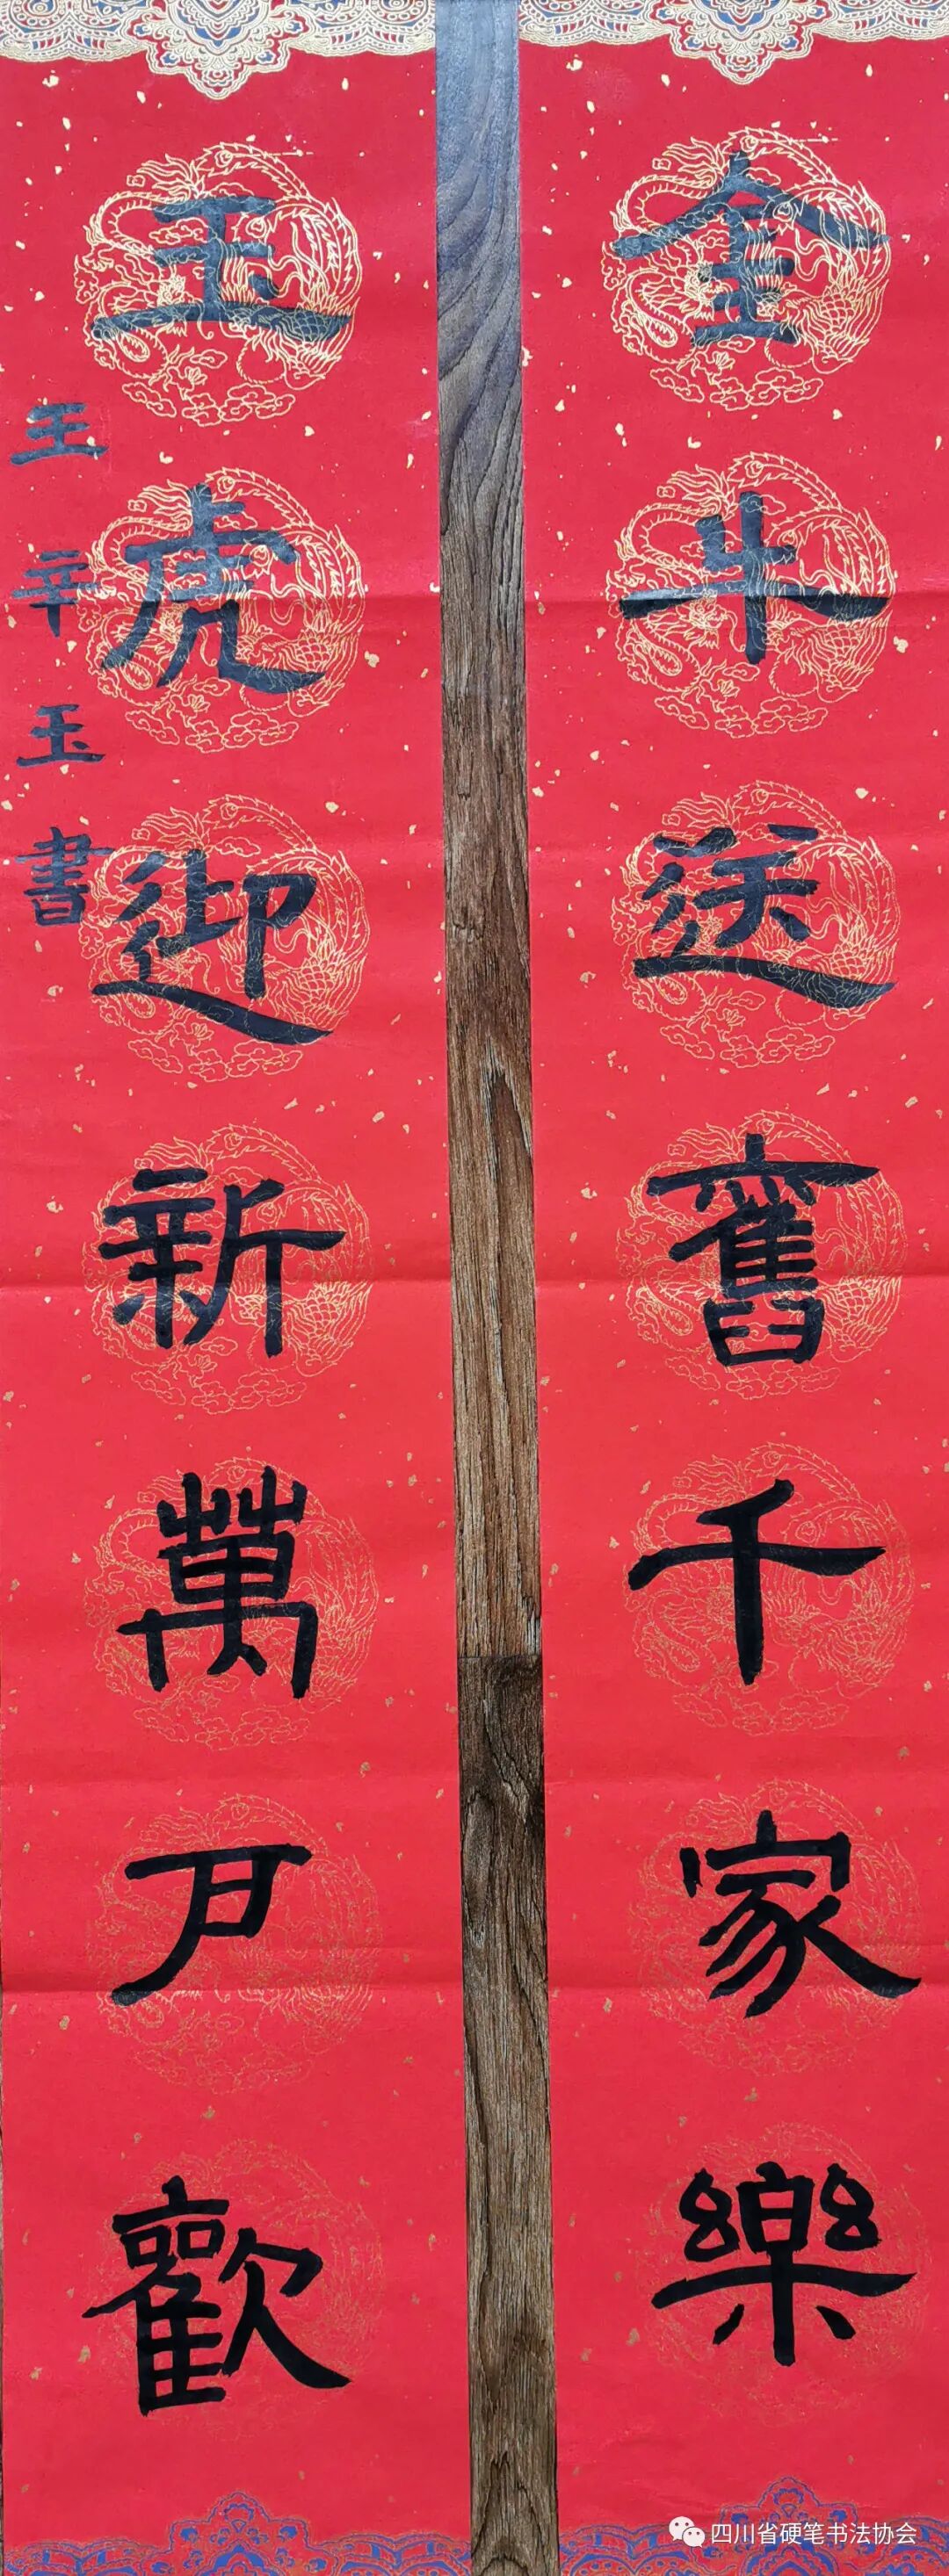 金牛送舊千家樂
玉虎迎新萬戶歡
王辛玉書
四川省硬笔书法协会